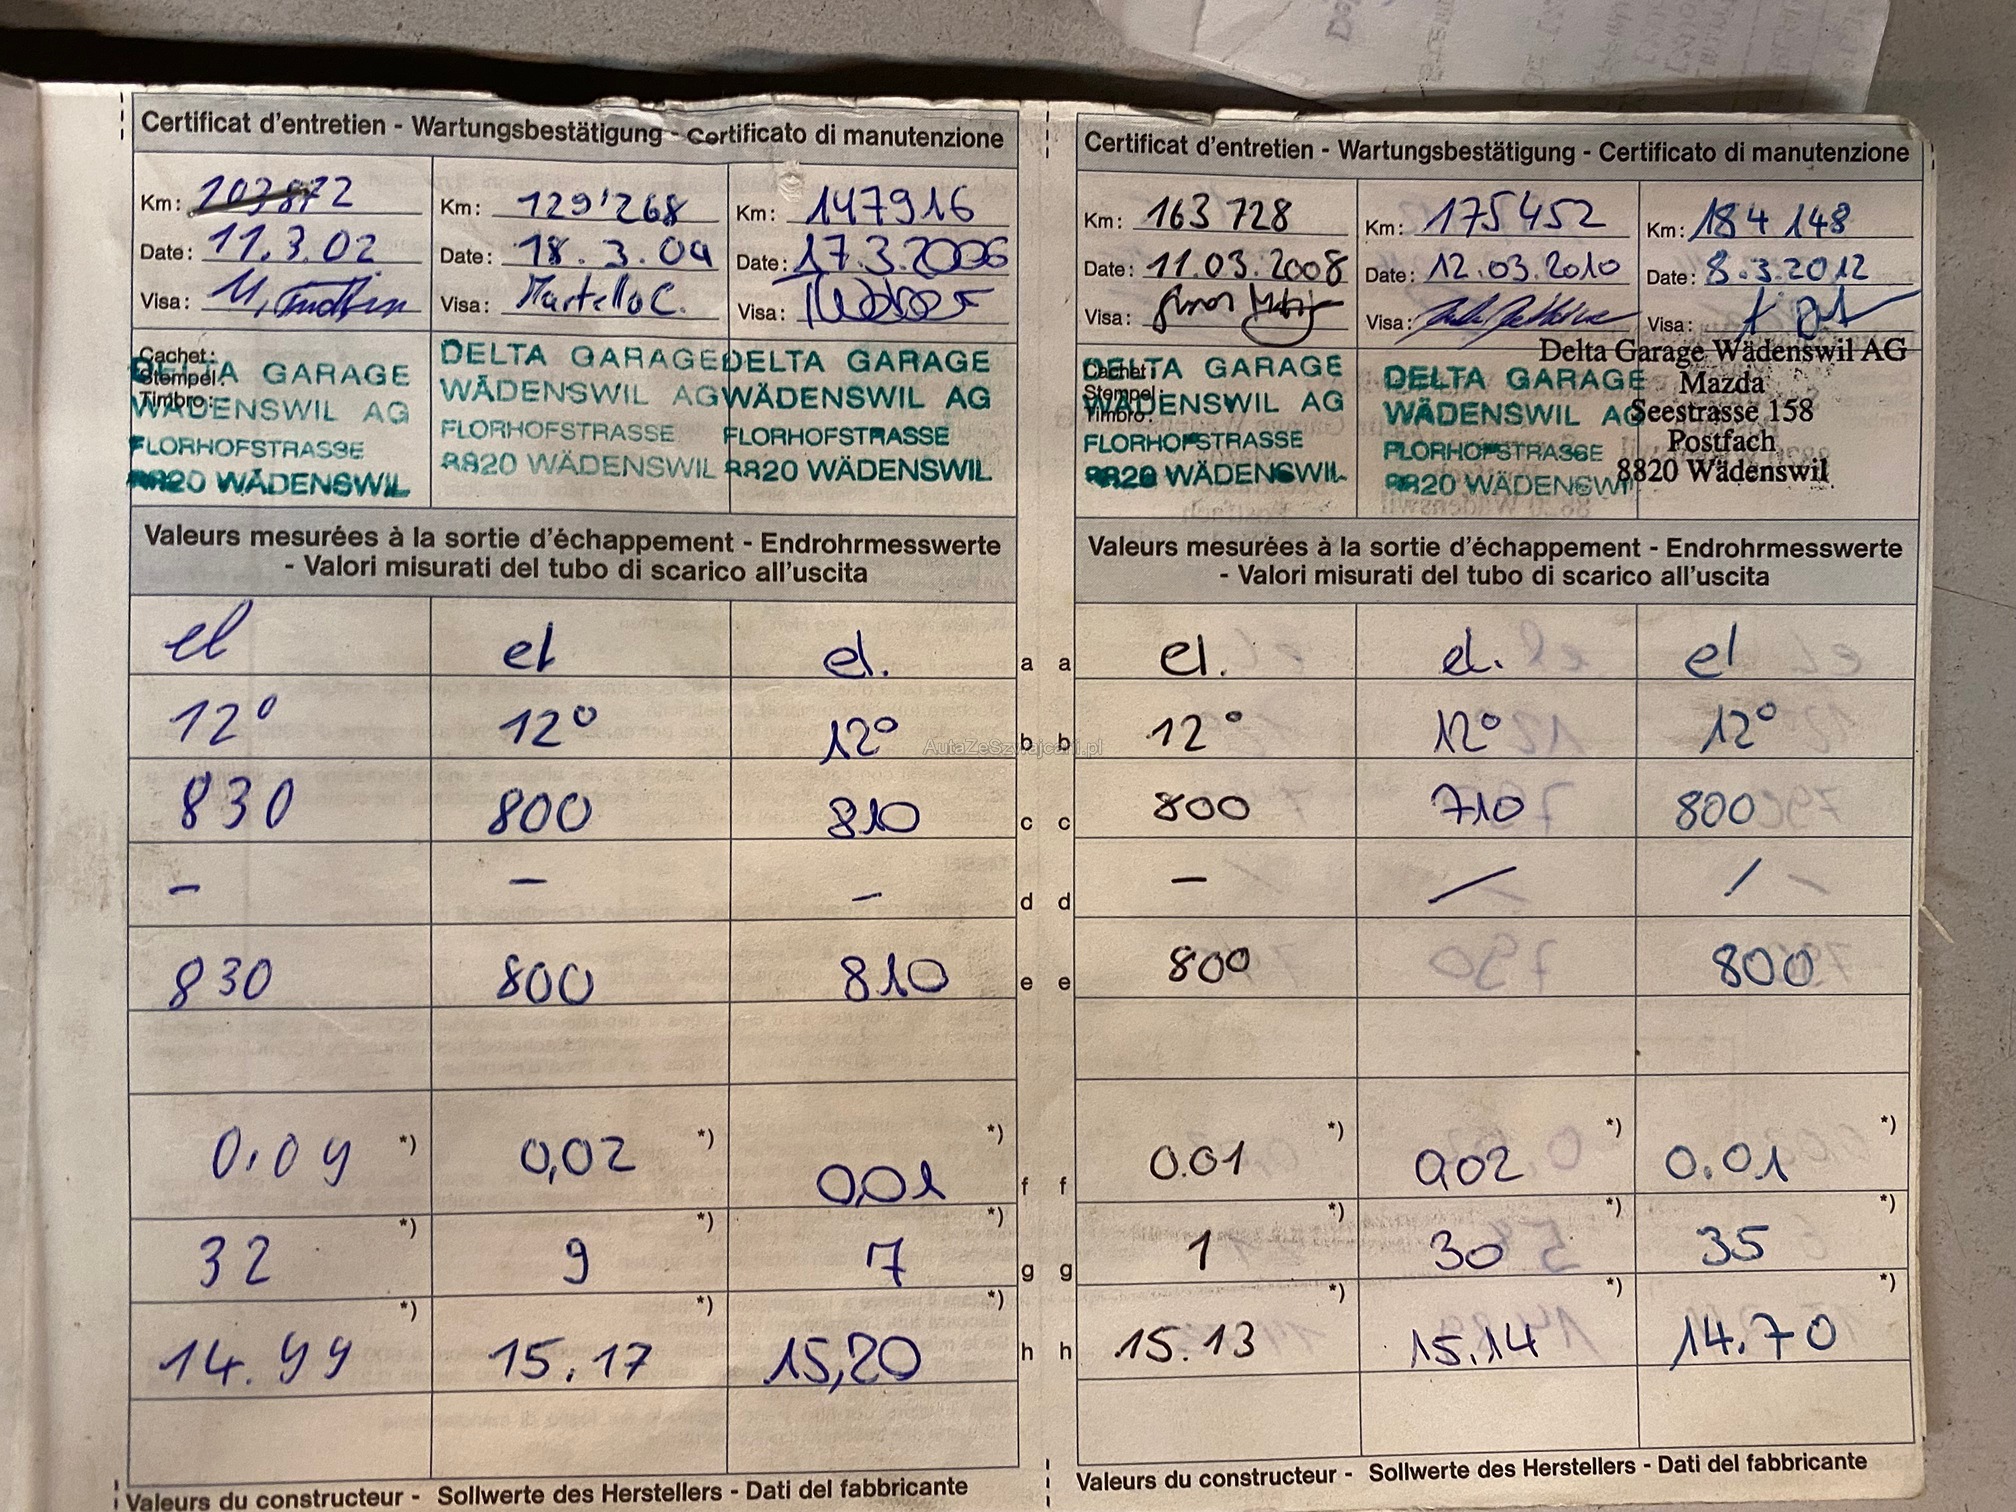 Certificat d'entretien - Wartungsbestätigung - Certificato di manutenzione
Km: 129'268
Km: 147916
Date: 11.3.02
Date: 18.3.04
Date: 17.3.2006
Visa:
Visa: Martello C.
Visa:
Cachet:
Stempel:
Timbro:
DELTA GARAGE
WÄDENSWIL AG
FLORHOFSTRASSE
8820 WÄDENSWIL
DELTA GARAGE
WÄDENSWIL AG
FLORHOFSTRASSE
8820 WÄDENSWIL
DELTA GARAGE
WÄDENSWIL AG
FLORHOFSTRASSE
8820 WÄDENSWIL
Valeurs mesurées à la sortie d'échappement - Endrohrmesswerte
- Valori misurati del tubo di scarico all'uscita
el el el. a
12° 12° 12° b
830 800 810 c
- - - d
830 800 810 e
0.04 *) 0,02 *) 0,01 *) f
32 *) 9 *) 7 *) g
14.99 *) 15.17 *) 15,20 *) h
Valeurs du constructeur - Sollwerte des Herstellers - Dati del fabbricante
Certificat d'entretien - Wartungsbestätigung - Certificato di manutenzione
Km: 163 728
Km: 175452
Km: 184 148
Date: 11.03.2008
Date: 12.03.2010
Date: 8.3.2012
Visa:
Visa:
Visa:
Cachet:
Stempel:
Timbro:
DELTA GARAGE
WÄDENSWIL AG
FLORHOFSTRASSE
8820 WÄDENSWIL
DELTA GARAGE
WÄDENSWIL AG
FLORHOFSTRASSE
8820 WÄDENSWIL
Delta Garage Wädenswil AG
Mazda
Seestrasse 158
Postfach
8820 Wädenswil
Valeurs mesurées à la sortie d'échappement - Endrohrmesswerte
- Valori misurati del tubo di scarico all'uscita
a el. el. el
b 12° 12° 12°
c 800 710 800
d - / /
e 800 800
f 0.01 *) 0,02 *) 0.01 *)
g 1 *) 30 *) 35 *)
h 15.13 *) 15.14 *) 14.70 *)
Valeurs du constructeur - Sollwerte des Herstellers - Dati del fabbricante
AutaZeSzwajcarii.pl